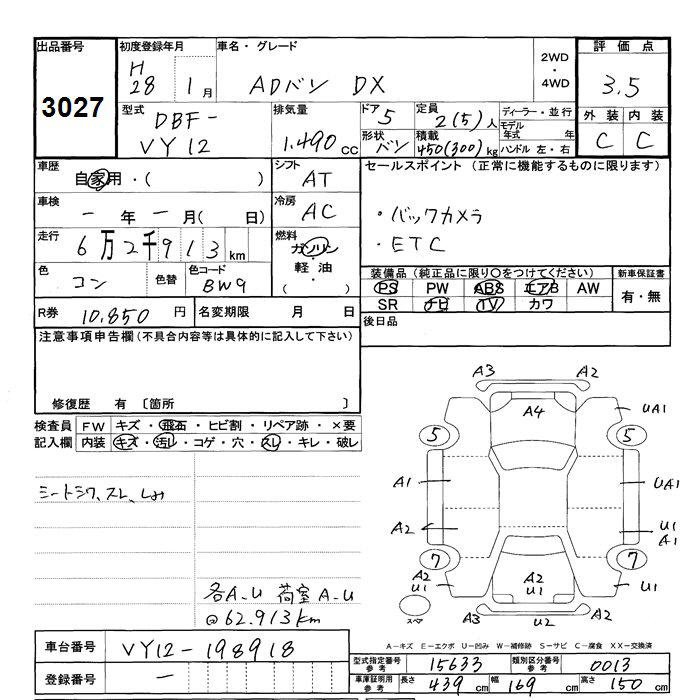 出品番号 初度登録年月 車名・グレード 評価点
3027 H28 1月 ADバン DX 2WD・4WD 3.5
型式 DBF-VY12 排気量 1.490cc ドア 5 定員 2(5)人 ディーラー・並行 外装 内装
形状 バン 積載 450(300)kg モデル年式 年 ハンドル 左・右 C C
車歴 自家用・( ) シフト AT セールスポイント (正常に機能するものに限ります)
車検 一年一月( 日) 冷房 AC ・バックカメラ
・ETC
走行 6万2千913km 燃料 ガソリン・軽油・( )
色 コン 色替 色コード BW9 装備品 (純正品に限り○をつけてください) 新車保証書
PS PW ABS エアB AW 有・無
SR ナビ TV カワ
R券 10,850円 名変期限 月 日 後日品
注意事項申告欄 (不具合内容等は具体的に記入して下さい)
修復歴 有 〔箇所 〕
検査員記入欄 FW キズ・飛石・ヒビ割・リペア跡・×要
内装 キズ・汚レ・コゲ・穴・スレ・キレ・破レ
A3 A2
A4 UA1
5 5
A1 UA1
A2 U1 A1
7 7
A2 U1 A2 U1 U1
スペア A3 U2
シートシワ、スレ、
各A-U 荷室A-U
@62.913km
A-キズ E-エクボ U-凹み W-補修跡 S-サビ C-腐食 XX-交換済
車台番号 VY12-198918
登録番号 一
型式指定番号 参考 15633 類別区分番号 参考 0013
車庫証明用 参考 長さ 439cm 幅 169cm 高さ 150cm